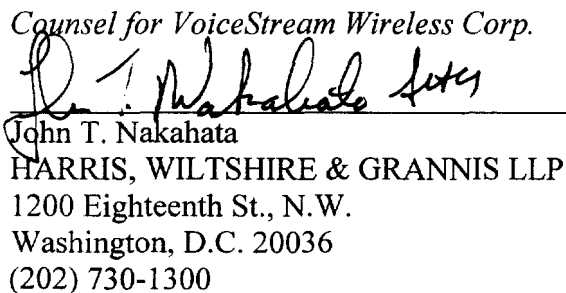 Counsel for VoiceStream Wireless Corp.
John T. Nakahata
John T. Nakahata
HARRIS, WILTSHIRE & GRANNIS LLP
1200 Eighteenth St., N.W.
Washington, D.C. 20036
(202) 730-1300